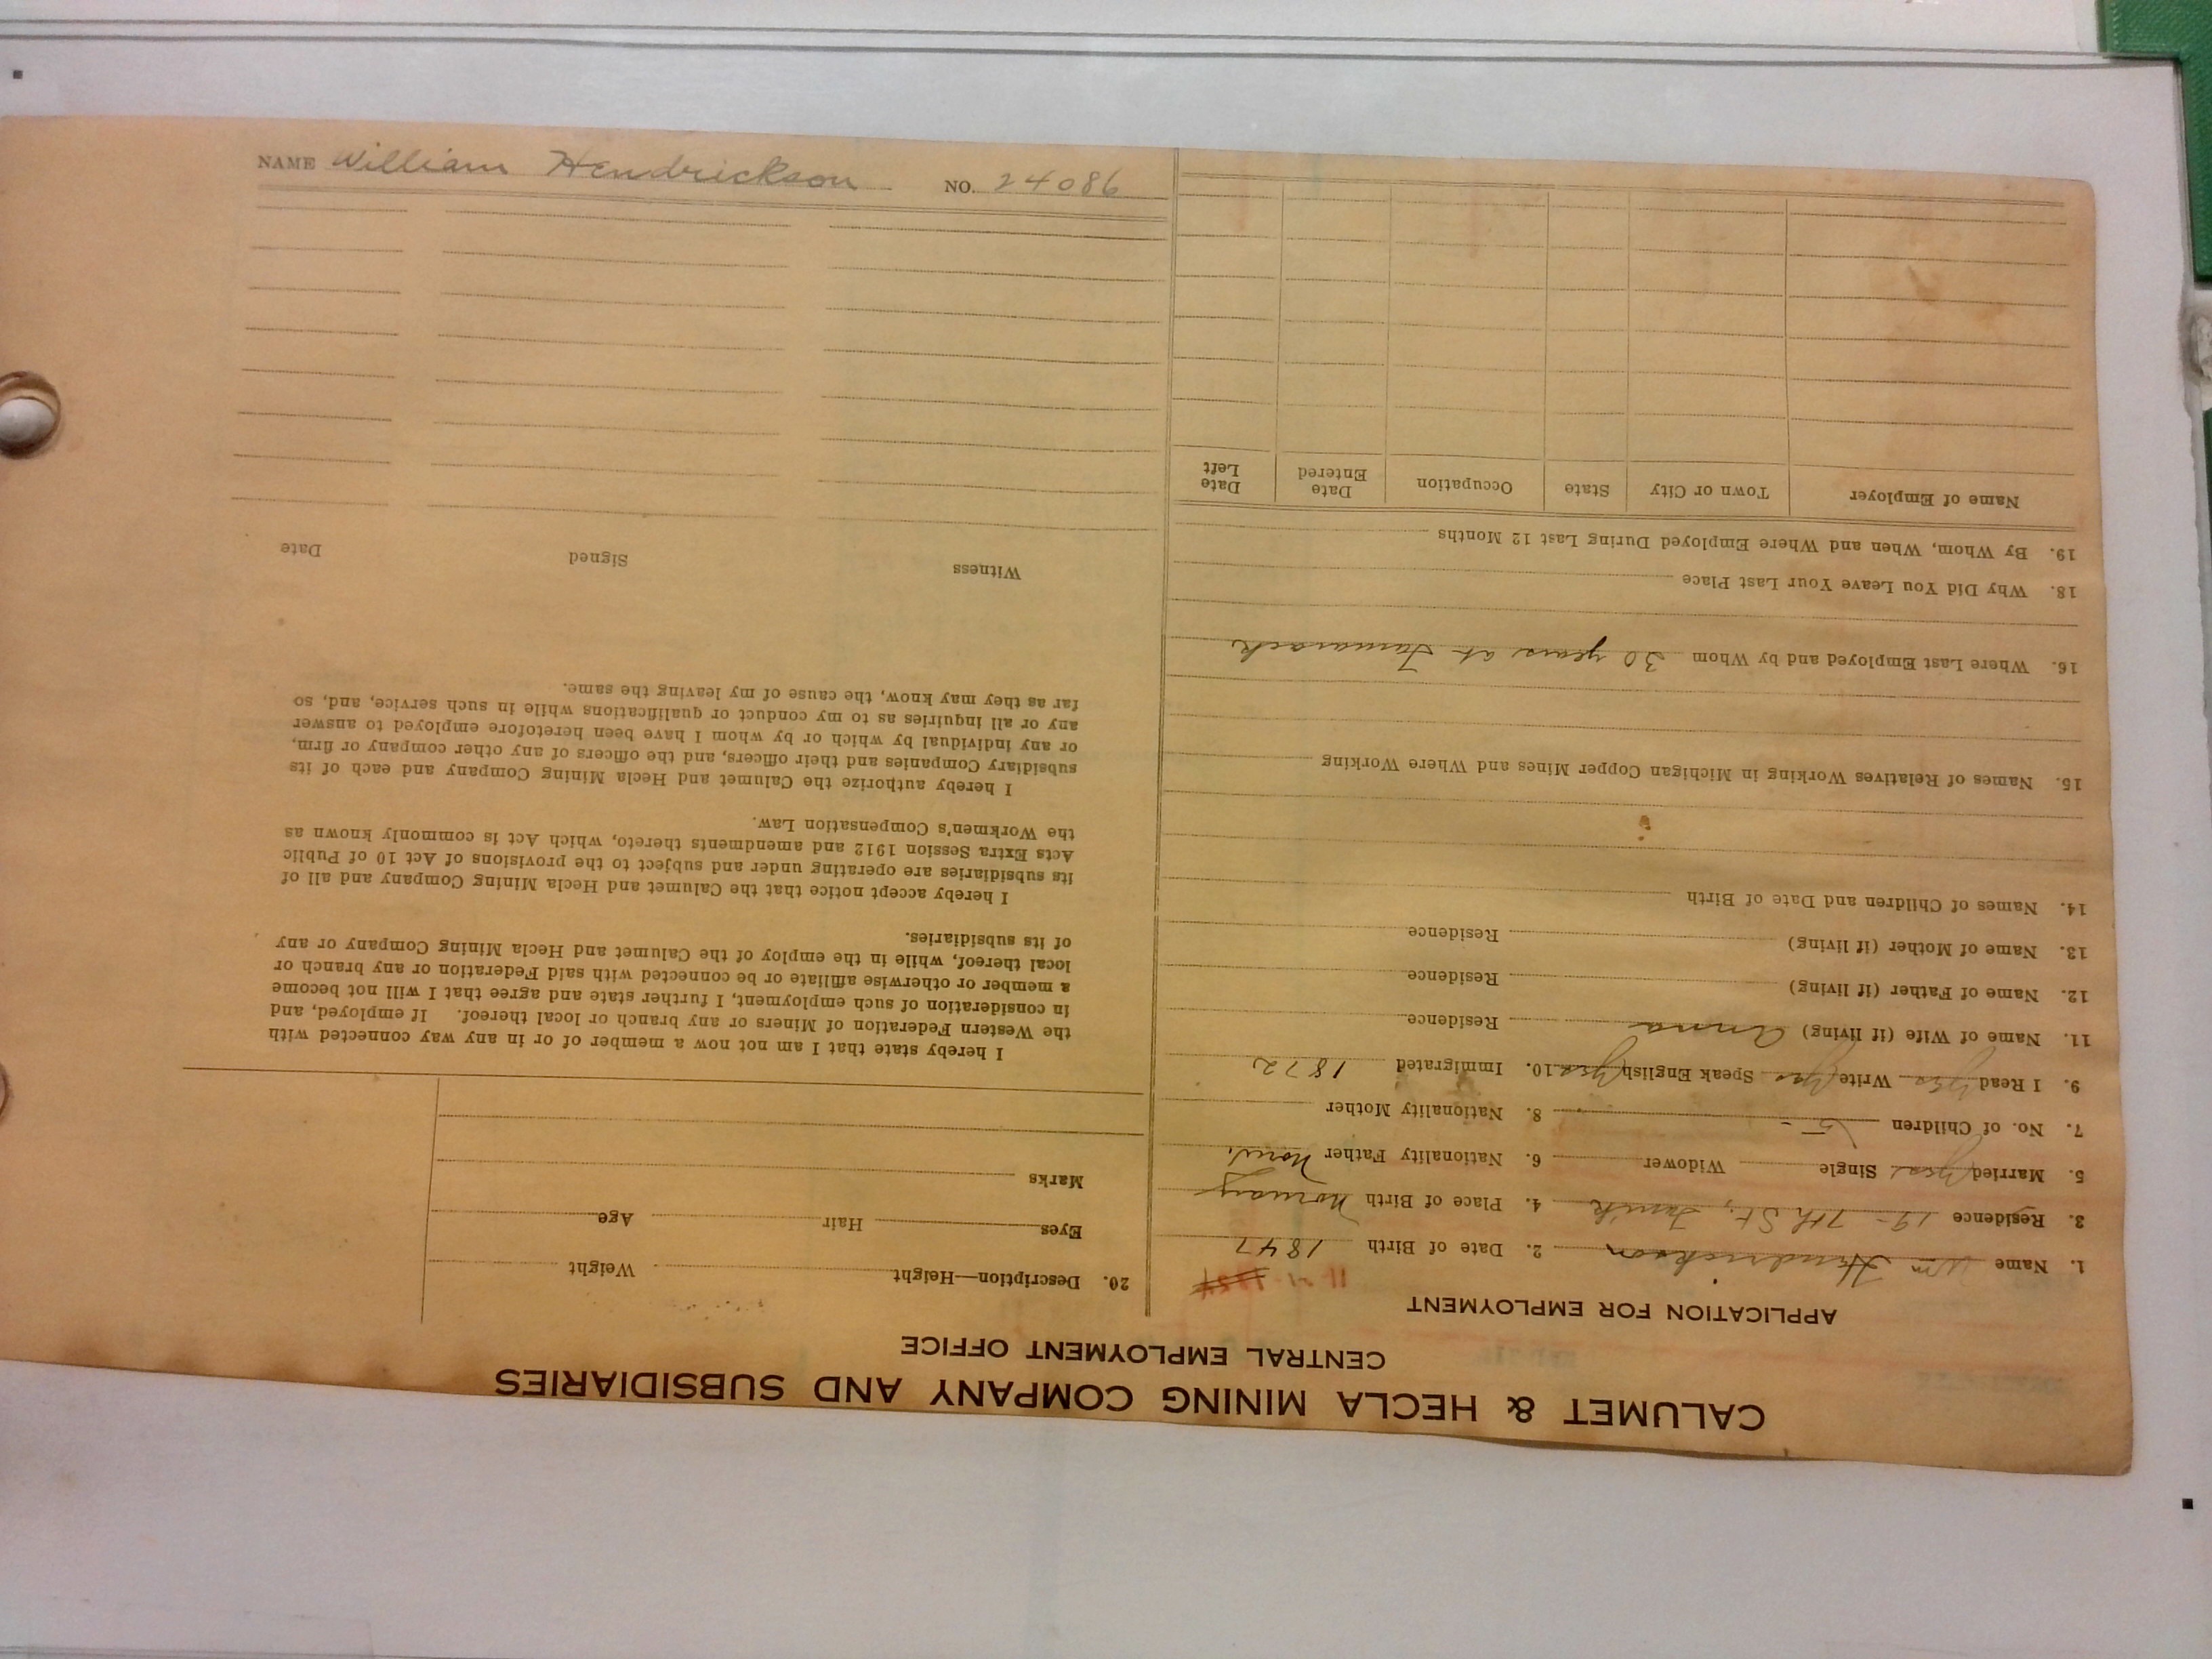 NAME William Hendrickson NO. 24086
CALUMET & HECLA MINING COMPANY AND SUBSIDIARIES
CENTRAL EMPLOYMENT OFFICE
APPLICATION FOR EMPLOYMENT
1. Name Wm Hendrickson 2. Date of Birth 1847
3. Residence 19 - 7th St, Tamk 4. Place of Birth Norway
5. Married Yes Single Widower 6. Nationality Father Norw.
7. No. of Children 5 - 8. Nationality Mother
9. I Read Yes Write Yes Speak English Yes 10. Immigrated 1872
11. Name of Wife (if living) Anna Residence
12. Name of Father (if living) Residence
13. Name of Mother (if living) Residence
14. Names of Children and Date of Birth
15. Names of Relatives Working in Michigan Copper Mines and Where Working
16. Where Last Employed and by Whom 30 years at Tamarack
18. Why Did You Leave Your Last Place
19. By Whom, When and Where Employed During Last 12 Months
Name of Employer Town or City State Occupation Date Entered Date Left
20. Description—Height Weight
Eyes Hair Age
Marks
I hereby state that I am not now a member of or in any way connected with
the Western Federation of Miners or any branch or local thereof. If employed, and
in consideration of such employment, I further state and agree that I will not become
a member or otherwise affiliate or be connected with said Federation or any branch or
local thereof, while in the employ of the Calumet and Hecla Mining Company or any
of its subsidiaries.
I hereby accept notice that the Calumet and Hecla Mining Company and all of
its subsidiaries are operating under and subject to the provisions of Act 10 of Public
Acts Extra Session 1912 and amendments thereto, which Act is commonly known as
the Workmen's Compensation Law.
I hereby authorize the Calumet and Hecla Mining Company and each of its
subsidiary Companies and their officers, and the officers of any other company or firm,
or any individual by which or by whom I have been heretofore employed to answer
any or all inquiries as to my conduct or qualifications while in such service, and, so
far as they may know, the cause of my leaving the same.
Witness Signed Date